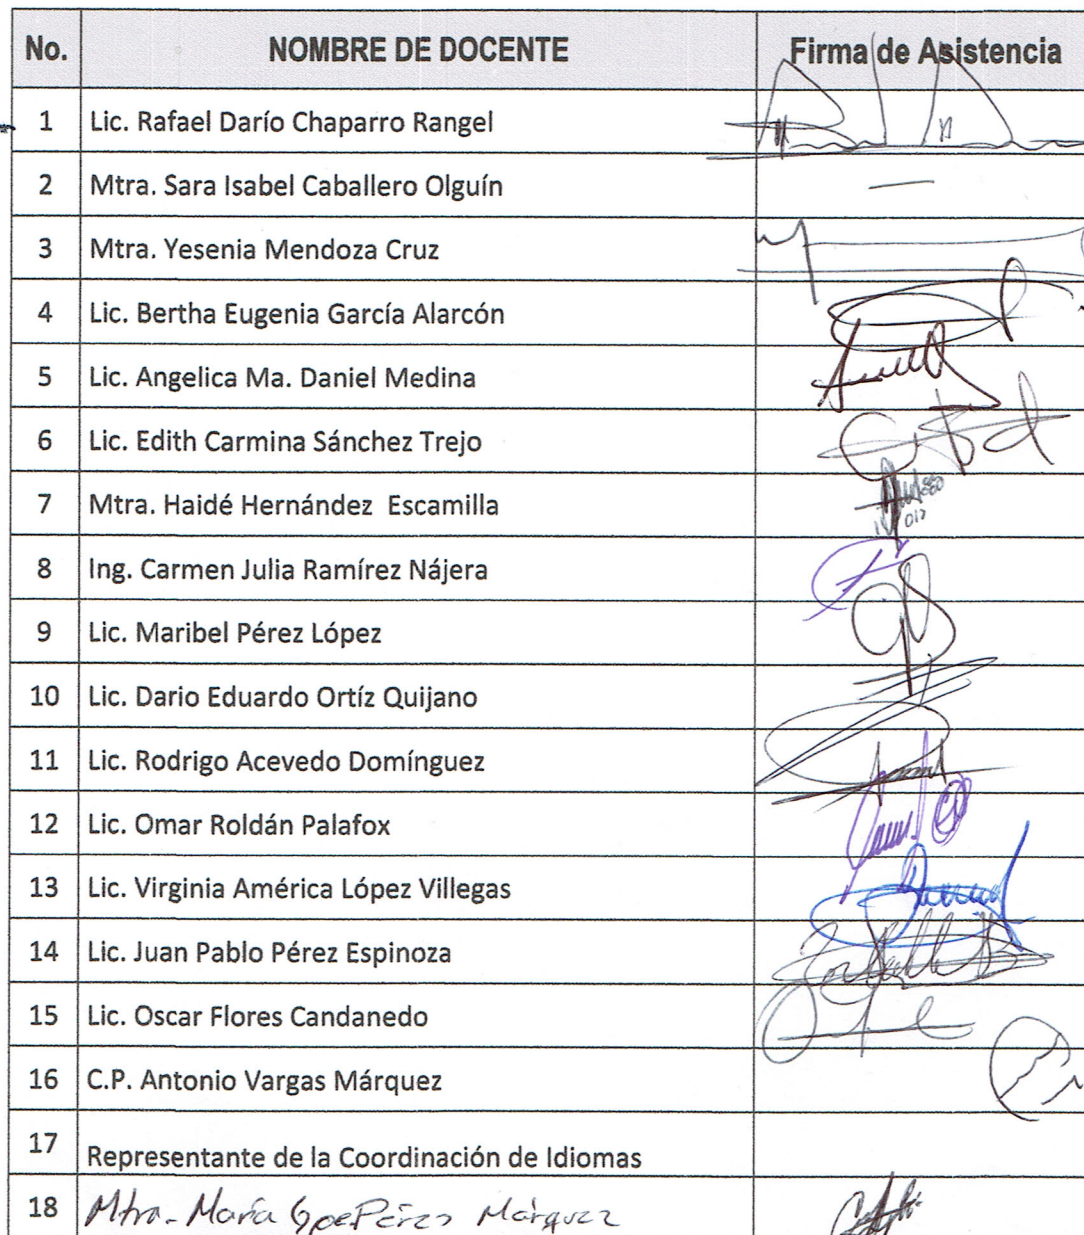 No. NOMBRE DE DOCENTE Firma de Asistencia
1 Lic. Rafael Darío Chaparro Rangel
2 Mtra. Sara Isabel Caballero Olguín —
3 Mtra. Yesenia Mendoza Cruz
4 Lic. Bertha Eugenia García Alarcón
5 Lic. Angelica Ma. Daniel Medina
6 Lic. Edith Carmina Sánchez Trejo
7 Mtra. Haidé Hernández Escamilla
8 Ing. Carmen Julia Ramírez Nájera
9 Lic. Maribel Pérez López
10 Lic. Dario Eduardo Ortíz Quijano
11 Lic. Rodrigo Acevedo Domínguez
12 Lic. Omar Roldán Palafox
13 Lic. Virginia América López Villegas
14 Lic. Juan Pablo Pérez Espinoza
15 Lic. Oscar Flores Candanedo
16 C.P. Antonio Vargas Márquez
17 Representante de la Coordinación de Idiomas
18 Mtra. María Gpe Pérez Márquez